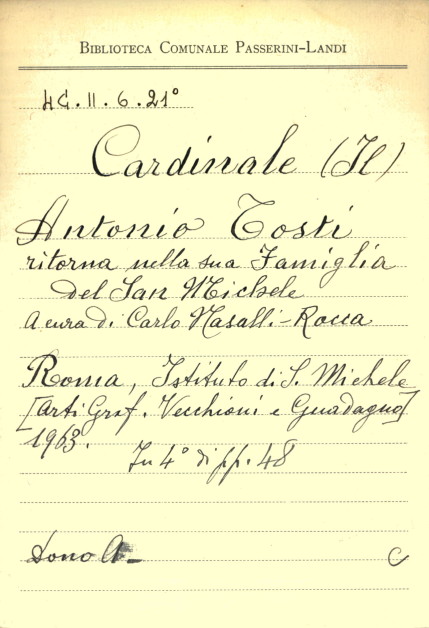 BIBLIOTECA COMUNALE PASSERINI-LANDI
4G.II.6.21°
Cardinale (Il)
Antonio Tosti
ritorna nella sua Famiglia
del San Michele
A cura di Carlo Nasalli-Rocca
Roma, Istituto di S. Michele
[Arti Graf. Vecchioni e Guadagno]
1963.
In 4° di pp. 48
Dono A-
C